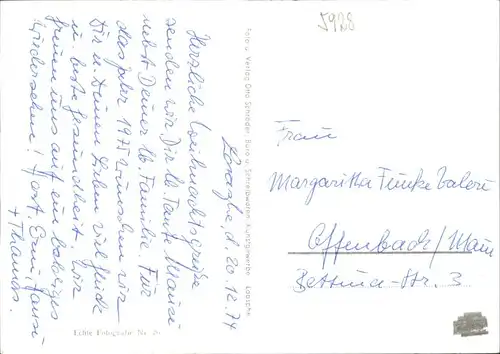 5928
Laasphe, d. 20.12.74
Herzliche Weihnachtsgrüße
senden wir Dir lb. Tante Mausi
nebst Deiner lb. Familie. Für
das Jahr 1975 wünschen wir
Dir u. Deinen Lieben viel Glück
u. beste Gesundheit. Wir
freuen uns auf ein baldiges
Wiedersehen! Horst Erni Hansi
+ Thomas.
Foto u. Verlag Otto Schröder Büro u. Schreibwaren Kunstgewerbe Laasphe
Echte Fotografie Nr.
Frau
Margaritha Funke Valeri
Offenbach/Main
Bettina-Str. 3